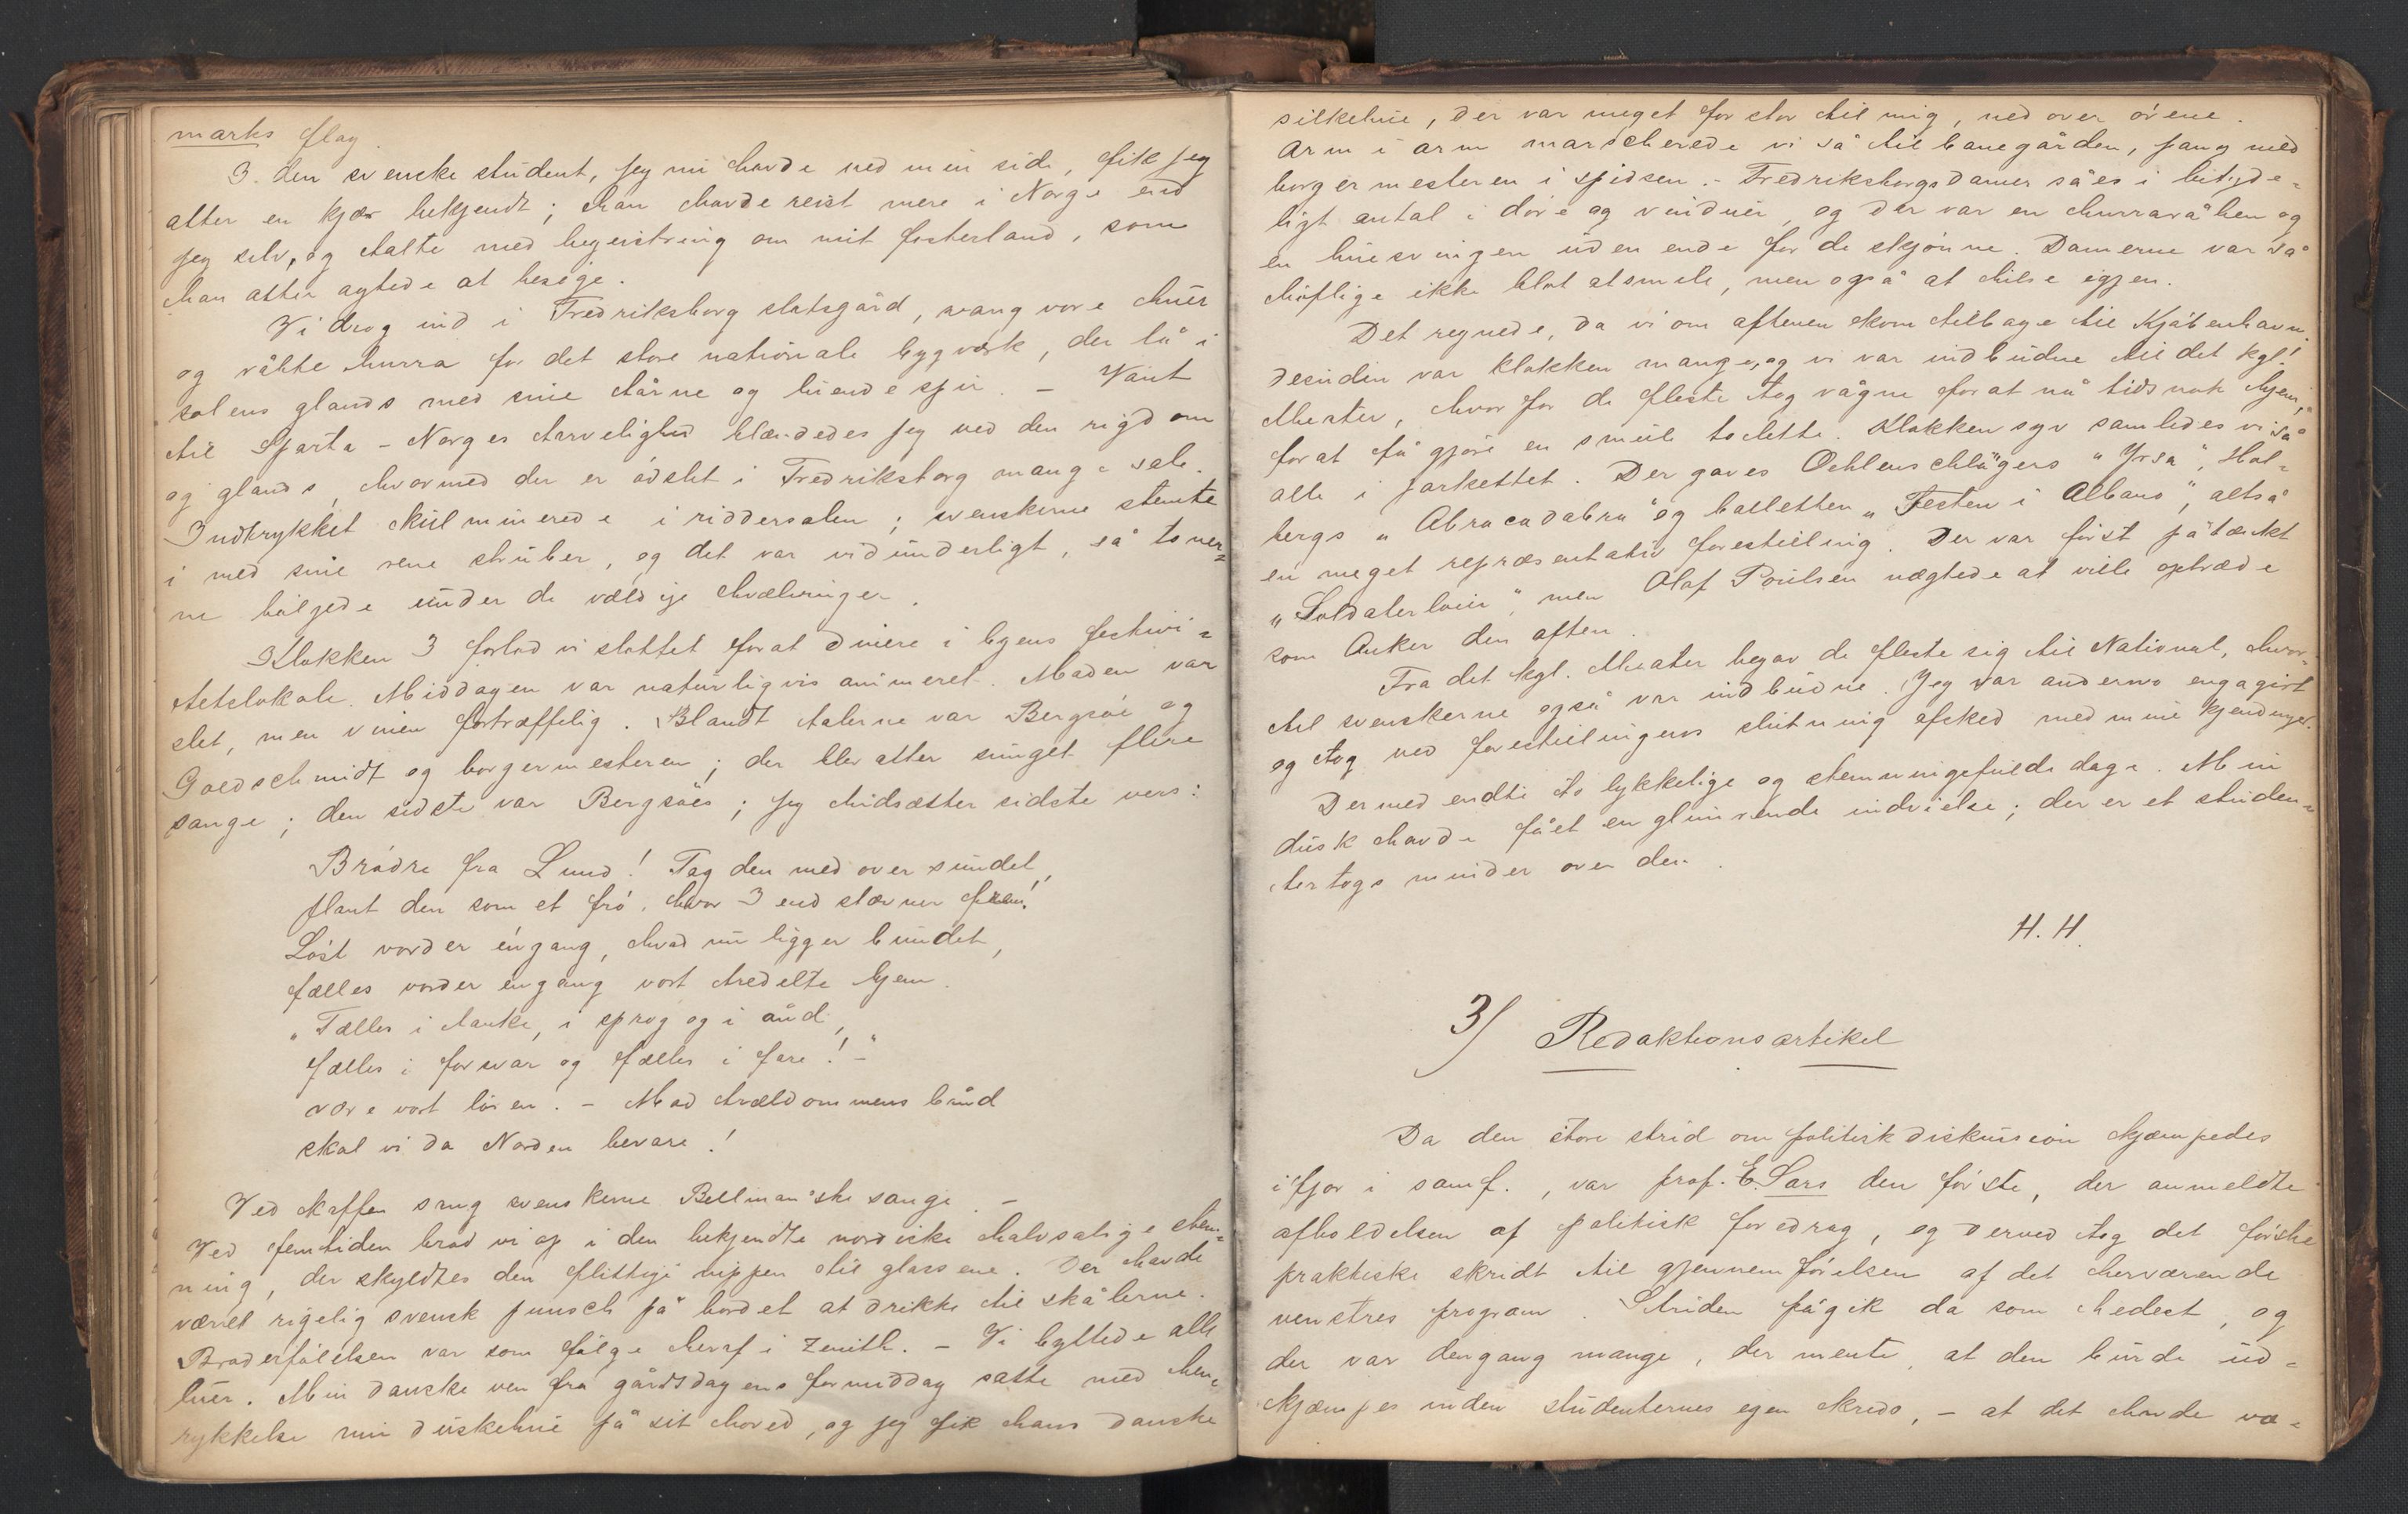 marks flag.
I den svenske student, jeg nu havde ved min side, fik jeg
atter en kjær bekjendt; han havde reist mere i Norge end
jeg selv, og talte med begeistring om mit fosterland, som
han atter agtede at besøge.
Vi drog ind i Fredriksborg slotsgård, svang vore huer
og råbte hurra for det store nationale bygværk, der lå i
solens glands med sine tårne og luende spir. – Vant
til Sparta-Norges tarvelighed blændedes jeg ved den rigdom
og glands, hvormed der er ødslet i Fredriksborg mange sale.
Indtrykket kulminerede i riddersalen; svenskerne stemte
i med sine rene struber, og det var vidunderligt, så toner=
ne bølgede under de vældige hvælvinger.
Klokken 3 forlod vi slottet for at dinere i byens festivi=
tetslokale. Middagen var naturligvis animeret. Maden var
slet, men vinen fortræffelig. Blandt talerne var Bergsøe og
Goldschmidt og borgermesteren; der blev atter sunget flere
sange; den sidste var Bergsøes; jeg hidsætter sidste vers:
Brødre fra Lund! Tag den med over sundet,
plant den som et frø, hvor I end stævner frem!
Løst vorder engang, hvad nu ligger bundet,
fælles vorder engang vort tredelte hjem.
„Fælles i tanke, i sprog og i ånd,
fælles i forsvar og fælles i fare! –"
være vort løsen. – Mod trældommens bånd
skal vi da Norden bevare!
Ved kaffen sang svenskerne Bellman'ske sange. –
Ved femtiden brød vi op i den bekjendte nordiske halvsalige stem=
ning, der skyldtes den flittige nippen til glassene. Der havde
været rigelig svensk punsch på bordet at drikke til skålerne.
Broderfølelsen var som følge heraf i Zenith. – Vi byttede alle
huer. Min danske ven fra gårsdagens formiddag satte med hen=
rykkelse min duskehue på sit hoved, og jeg fik hans danske
silkehue, der var meget for stor til mig, ned over ørene.
Arm i arm marscherede vi så til banegården, sang med
borgermesteren i spidsen. – Fredriksborgsdamer såes i betyde=
ligt antal i døre og vinduer, og der var en hurraråben og
en huesvingen uden ende for de skjønne. Damerne var så
høflige ikke blot at smile, men også at hilse igjen.
Det regnede, da vi om aftenen kom tilbage til Kjøbenhavn
desuden var klokken mange, og vi var indbudne til det kgl.
theater, hvorfor de fleste tog vågne for at nå tidsnok hjem,
for at få gjøre en smule toilette. Klokken syv samledes vi så
alle i parkettet. Der gaves Oehlenschlägers „Yrsa", Hol=
bergs „Abracadabra" og balletten „Festen i Albano", altså
en meget repræsentativ forestilling. Der var først påtænkt
„Soldaterløier", men Olaf Poulsen nægtede at ville optræde
som Anker den aften.
Fra det kgl. theater begav de fleste sig til National, hvor=
til svenskerne også var indbudne. Jeg var andenvo engagirt
og tog ved forestillingens slutning afsked med mine kjendinger.
Dermed endte to lykkelige og stemningsfulde dage. Min
dusk havde fået en glimrende indvielse; der er et studen=
tertogs minder over den.
H. H.
3/ Redaktionsartikel
Da den store strid om politisk diskussion kjæmpedes
ifjor i samf., var prof. E. Sars den første, der anmeldte
afholdelsen af politisk foredrag, og derved tog det første
praktiske skridt til gjennemførelsen af det herværende
venstres program. Striden pågik da som hedest, og
der var dengang mange, der mente, at den burde ud=
kjæmpes inden studenternes egen kreds, – at det havde væ=